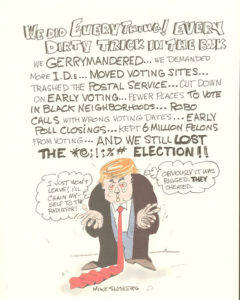 WE DID EVERYTHING! EVERY
DIRTY TRICK IN THE BOOK
WE GERRYMANDERED... WE DEMANDED
MORE I.D.s... MOVED VOTING SITES...
TRASHED THE POSTAL SERVICE... CUT DOWN
ON EARLY VOTING... FEWER PLACES TO VOTE
IN BLACK NEIGHBORHOODS... ROBO
CALLS WITH WRONG VOTING DATES... EARLY
POLL CLOSINGS... KEPT 6 MILLION FELONS
FROM VOTING... AND WE STILL LOST
THE *@;!;%# ELECTION!!
I JUST WON'T
LEAVE! I'LL
CHAIN MY-
SELF TO THE
RADIATOR!
OBVIOUSLY IT WAS
RIGGED. THEY
CHEATED.